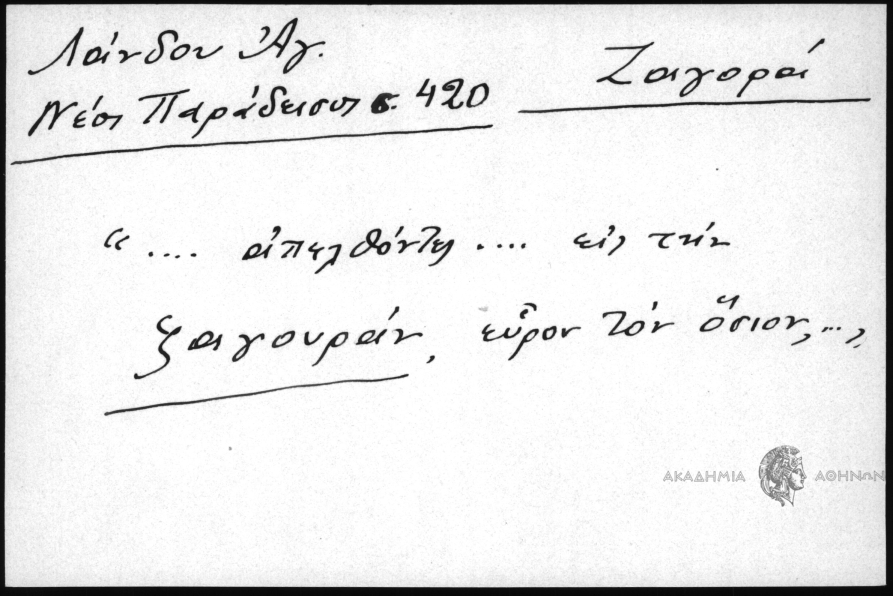 Λάνδου Ἀγ.
Νέος Παράδεισος σ. 420
Ζαγορά
“.... ἀπελθόντες .... εἰς τὴν
ζαγουράν, εὗρον τὸν ὅσιον,...,,
ΑΚΑΔΗΜΙΑ ΑΘΗΝΩΝ